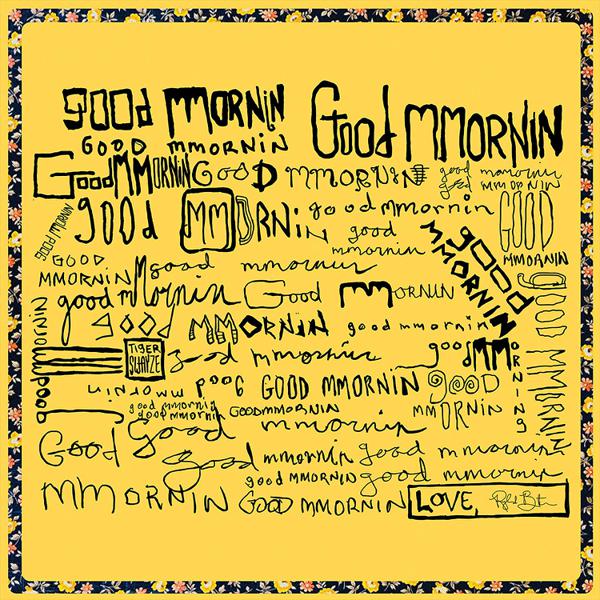 good mmornin Good mmornin
GOOD mmornin
Good mmornin Good mmornin good mmornin
good mmornin
good mmornin good mmornin GOOD
good mmornin good
mmornin MMORNIN
GOOD mmornin good mmornin
MMORNIN good mmornin
good mmornin Good mmornin GOOD MMORNIN
good mmornin good mmornin
good mmornin TIGER good mmornin good mmornin
SWAYZE
good mmornin GOOD MMORNIN good
good mmornin GOODMMORNIN mmornin
good mmornin
Good good mmornin
good mmornin good mmornin
good mmornin good mmornin
MMORNIN Good mmornin LOVE,